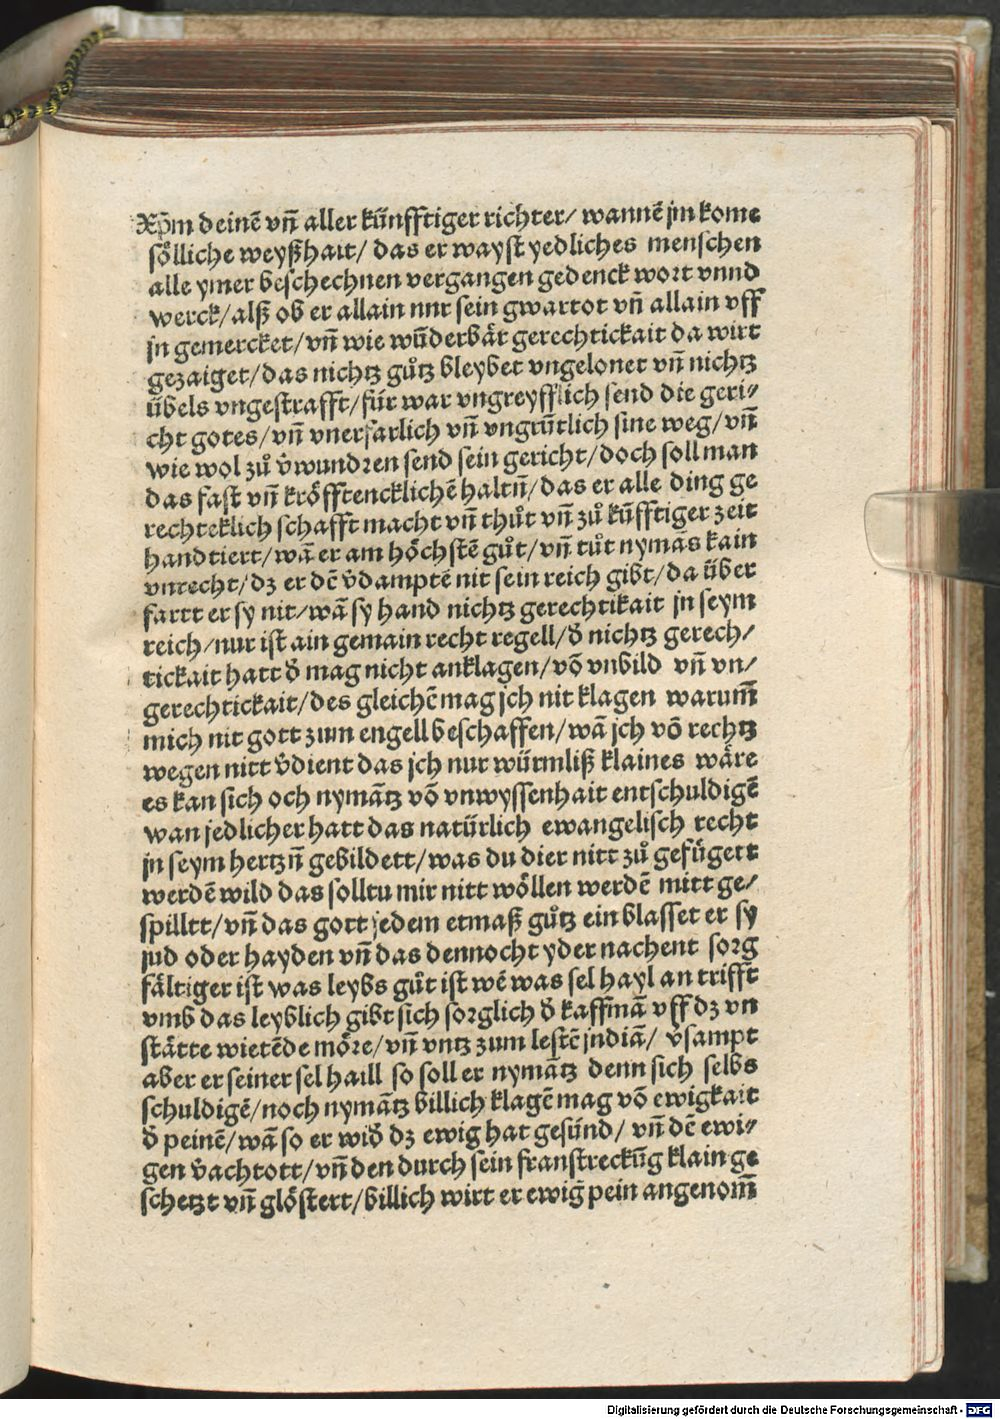 Xp̄m deinē vn̄ aller künfftiger richter/ wannē jn kome
sölliche weyßhait/ das er wayst yedliches menschen
alle ymer beschechnen vergangen gedenck wort vnnd
werck/ alß ob er allain nur sein gwartot vn̄ allain vff
jn gemercket/ vn̄ wie wūderbär gerechtickait da wirt
gezaiget/ das nichtz gůtz bleybet vngelonet vn̄ nichtz
übels vngestrafft/ für war vngreyfflich send die geri⸗
cht gotes/ vn̄ vnerfarlich vn̄ vngrūtlich sine weg/ vn̄
wie wol zů v̄wundren send sein gericht/ doch soll man
das fast vn̄ kröfftencklichē haltn̄/ das er alle ding ge
rechteklich schafft macht vn̄ thůt vn̄ zů kūfftiger zeit
handtiert/ wā er am höchstē gůt/ vn̄ tůt nymās kain
vnrecht/ dz er dē v̄damptē nit sein reich gibt/ da über
fartt er sy nit/ wā sy hand nichtz gerechtikait jn seym
reich/ nur ist ain gemain recht regell/ d̄ nichtz gerech/
tickait hatt d̄ mag nicht anklagen/ vō vnbild vn̄ vn/
gerechtickait/ des gleichē mag jch nit klagen warum̄
mich nit gott zum engell beschaffen/ wā jch vō rechtz
wegen nitt v̄dient das jch nur würmliß klaines wäre
es kan sich och nymātz vō vnwyssenhait entschuldigē
wan jedlicher hatt das natürlich ewangelisch recht
jn seym hertzn̄ gebildett/ was du dier nitt zů gefügett
werdē wild das solltu mir nitt wöllen werdē mitt ge/
spilltt/ vn̄ das gott jedem etmaß gůtz ein blasset er sy
jud oder hayden vn̄ das dennocht yder nachent sorg
fältiger ist was leybs gůt ist wē was sel hayl an trifft
vmb das leyblich gibt sich sorglich d̄ kaffmā vff dz vn
stätte wietēde möre/ vn̄ vntz zum lestē jndiā/ v̄sampt
aber er seiner sel haill so soll er nymātz denn sich selbs
schuldigē/ noch nymātz billich klagē mag vō ewigkait
d̄ peinē/ wā so er wid̄ dz ewig hat gesünd/ vn̄ dē ewi⸗
gen v̄achtott/ vn̄ den durch sein franstreckūg klain ge
schetzt vn̄ glöstert/ billich wirt er ewig pein angenom̄
Digitalisierung gefördert durch die Deutsche Forschungsgemeinschaft - DFG